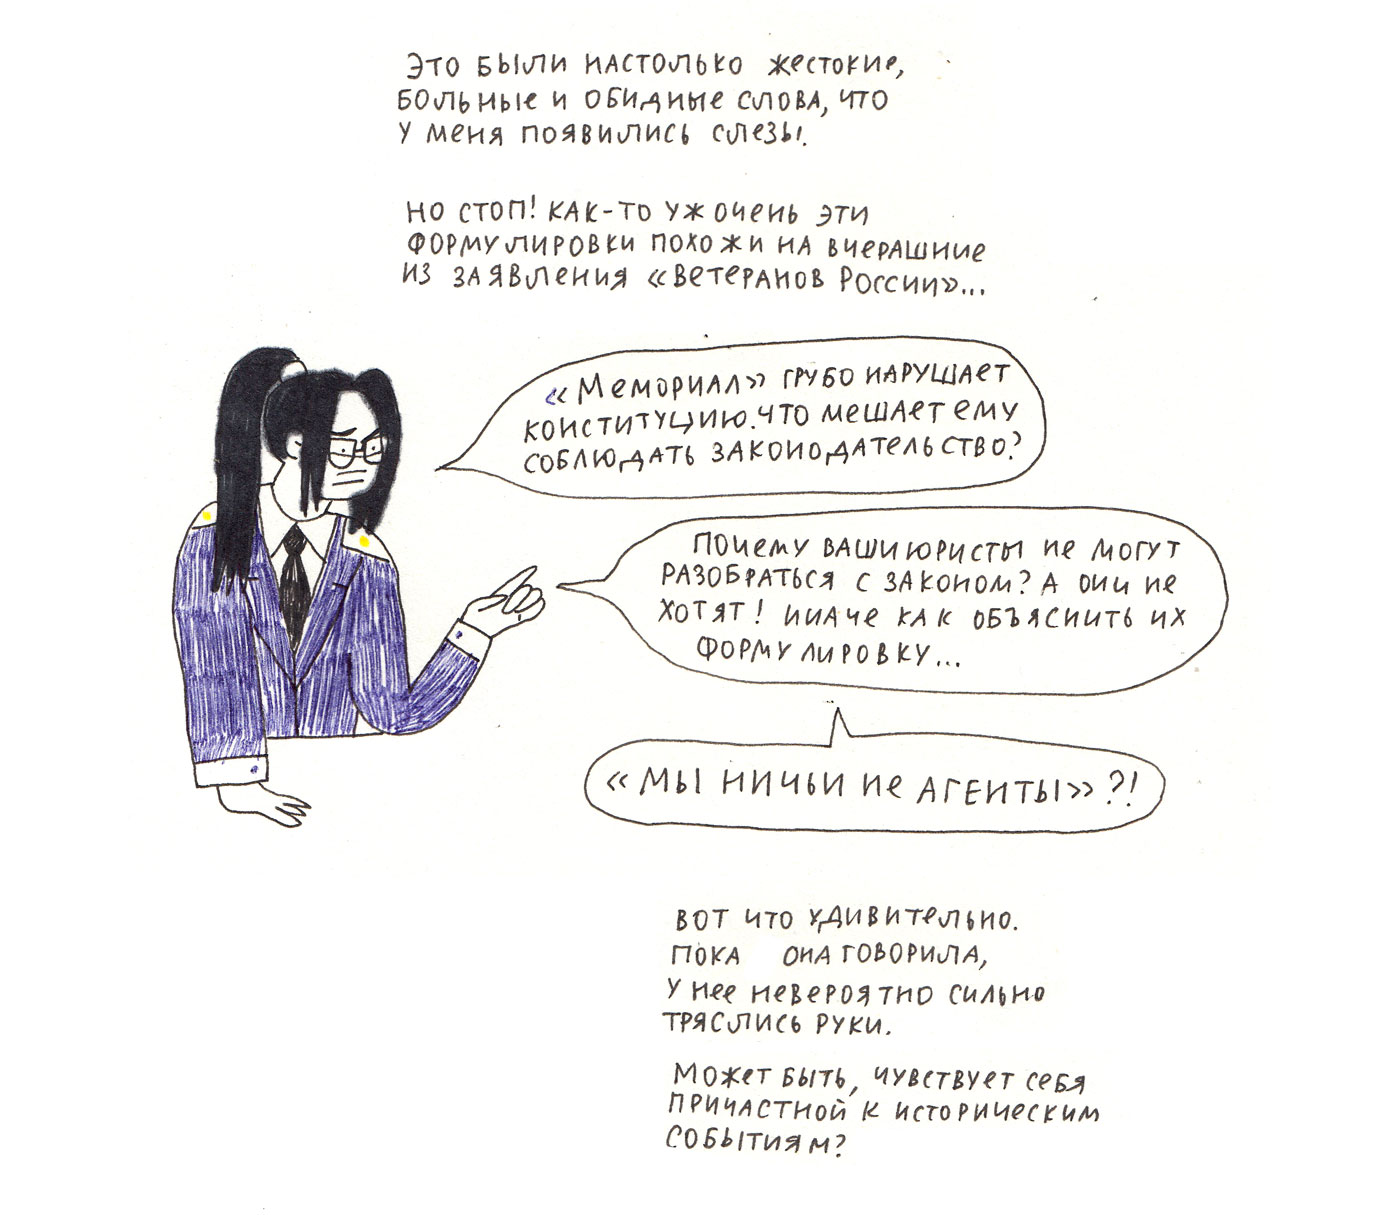 ЭТО БЫЛИ НАСТОЛЬКО ЖЕСТОКИЕ,
БОЛЬНЫЕ И ОБИДНЫЕ СЛОВА, ЧТО
У МЕНЯ ПОЯВИЛИСЬ СЛЕЗЫ.
НО СТОП! КАК-ТО УЖ ОЧЕНЬ ЭТИ
ФОРМУЛИРОВКИ ПОХОЖИ НА ВЧЕРАШНИЕ
ИЗ ЗАЯВЛЕНИЯ «ВЕТЕРАНОВ РОССИИ»...
«МЕМОРИАЛ» ГРУБО НАРУШАЕТ
КОНСТИТУЦИЮ. ЧТО МЕШАЕТ ЕМУ
СОБЛЮДАТЬ ЗАКОНОДАТЕЛЬСТВО?
ПОЧЕМУ ВАШИ ЮРИСТЫ НЕ МОГУТ
РАЗОБРАТЬСЯ С ЗАКОНОМ? А ОНИ НЕ
ХОТЯТ! ИНАЧЕ КАК ОБЪЯСНИТЬ ИХ
ФОРМУЛИРОВКУ...
«МЫ НИЧЬИ НЕ АГЕНТЫ»?!
ВОТ ЧТО УДИВИТЕЛЬНО.
ПОКА ОНА ГОВОРИЛА,
У НЕЕ НЕВЕРОЯТНО СИЛЬНО
ТРЯСЛИСЬ РУКИ.
МОЖЕТ БЫТЬ, ЧУВСТВУЕТ СЕБЯ
ПРИЧАСТНОЙ К ИСТОРИЧЕСКИМ
СОБЫТИЯМ?